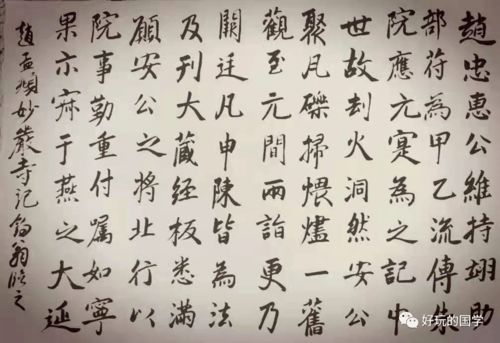 趙忠惠公維持翊助
部苻為甲乙流傳朱
院應元寔為之記中
世故刦火洞然安公
聚凡礫掃煨燼一舊
觀至元間兩詣更乃
闕廷凡申陳皆為法
及刊大藏经板悉滿
願安公之將北行以
院事勤重付囑如寧
果示寂于燕之大延
趙孟頫妙嚴寺記 翁臨之
好玩的国学